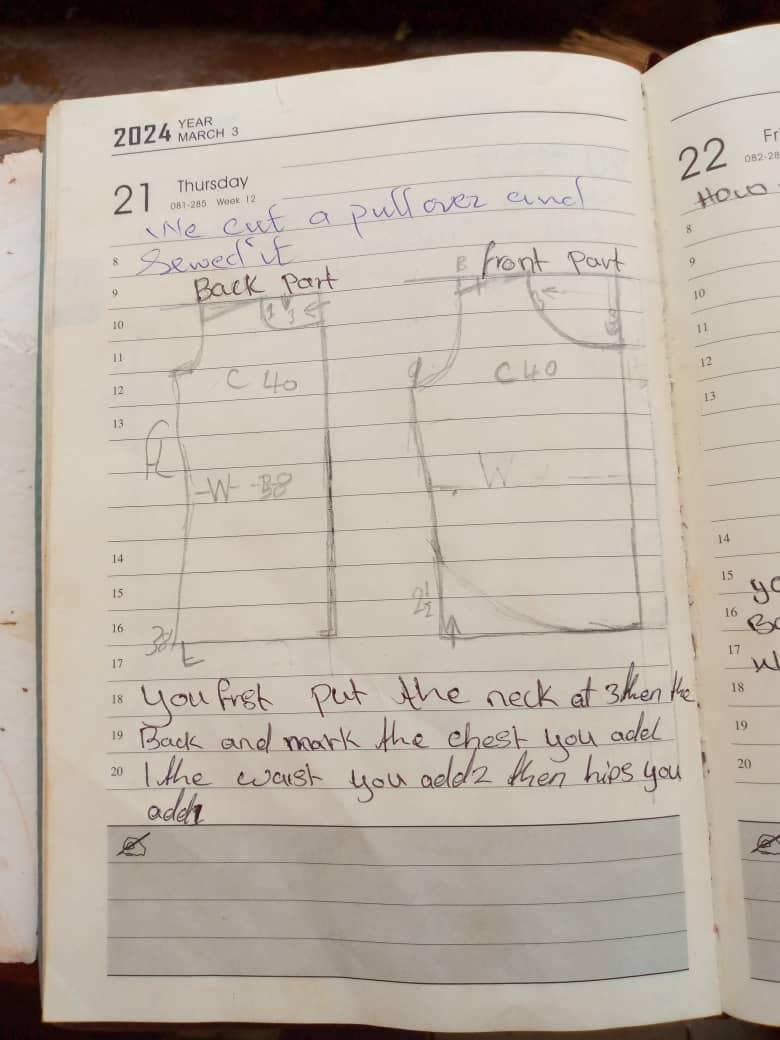 2024 YEAR MARCH 3
21 Thursday
081-285 Week 12
We cut a pullover and
8 Sewed it
9 Back Part
front Part
B
10
3
3
11
12 C 40
C 40
13
-W- -38
W
14
15 2½
16 38
17
18 you first put the neck at 3 then the
19 Back and mark the chest you add
20 1 the waist you add 2 then hips you
add 1
22 Fri
082-28
8
9
10
11
12
13
14
15
16
17
18
19
20